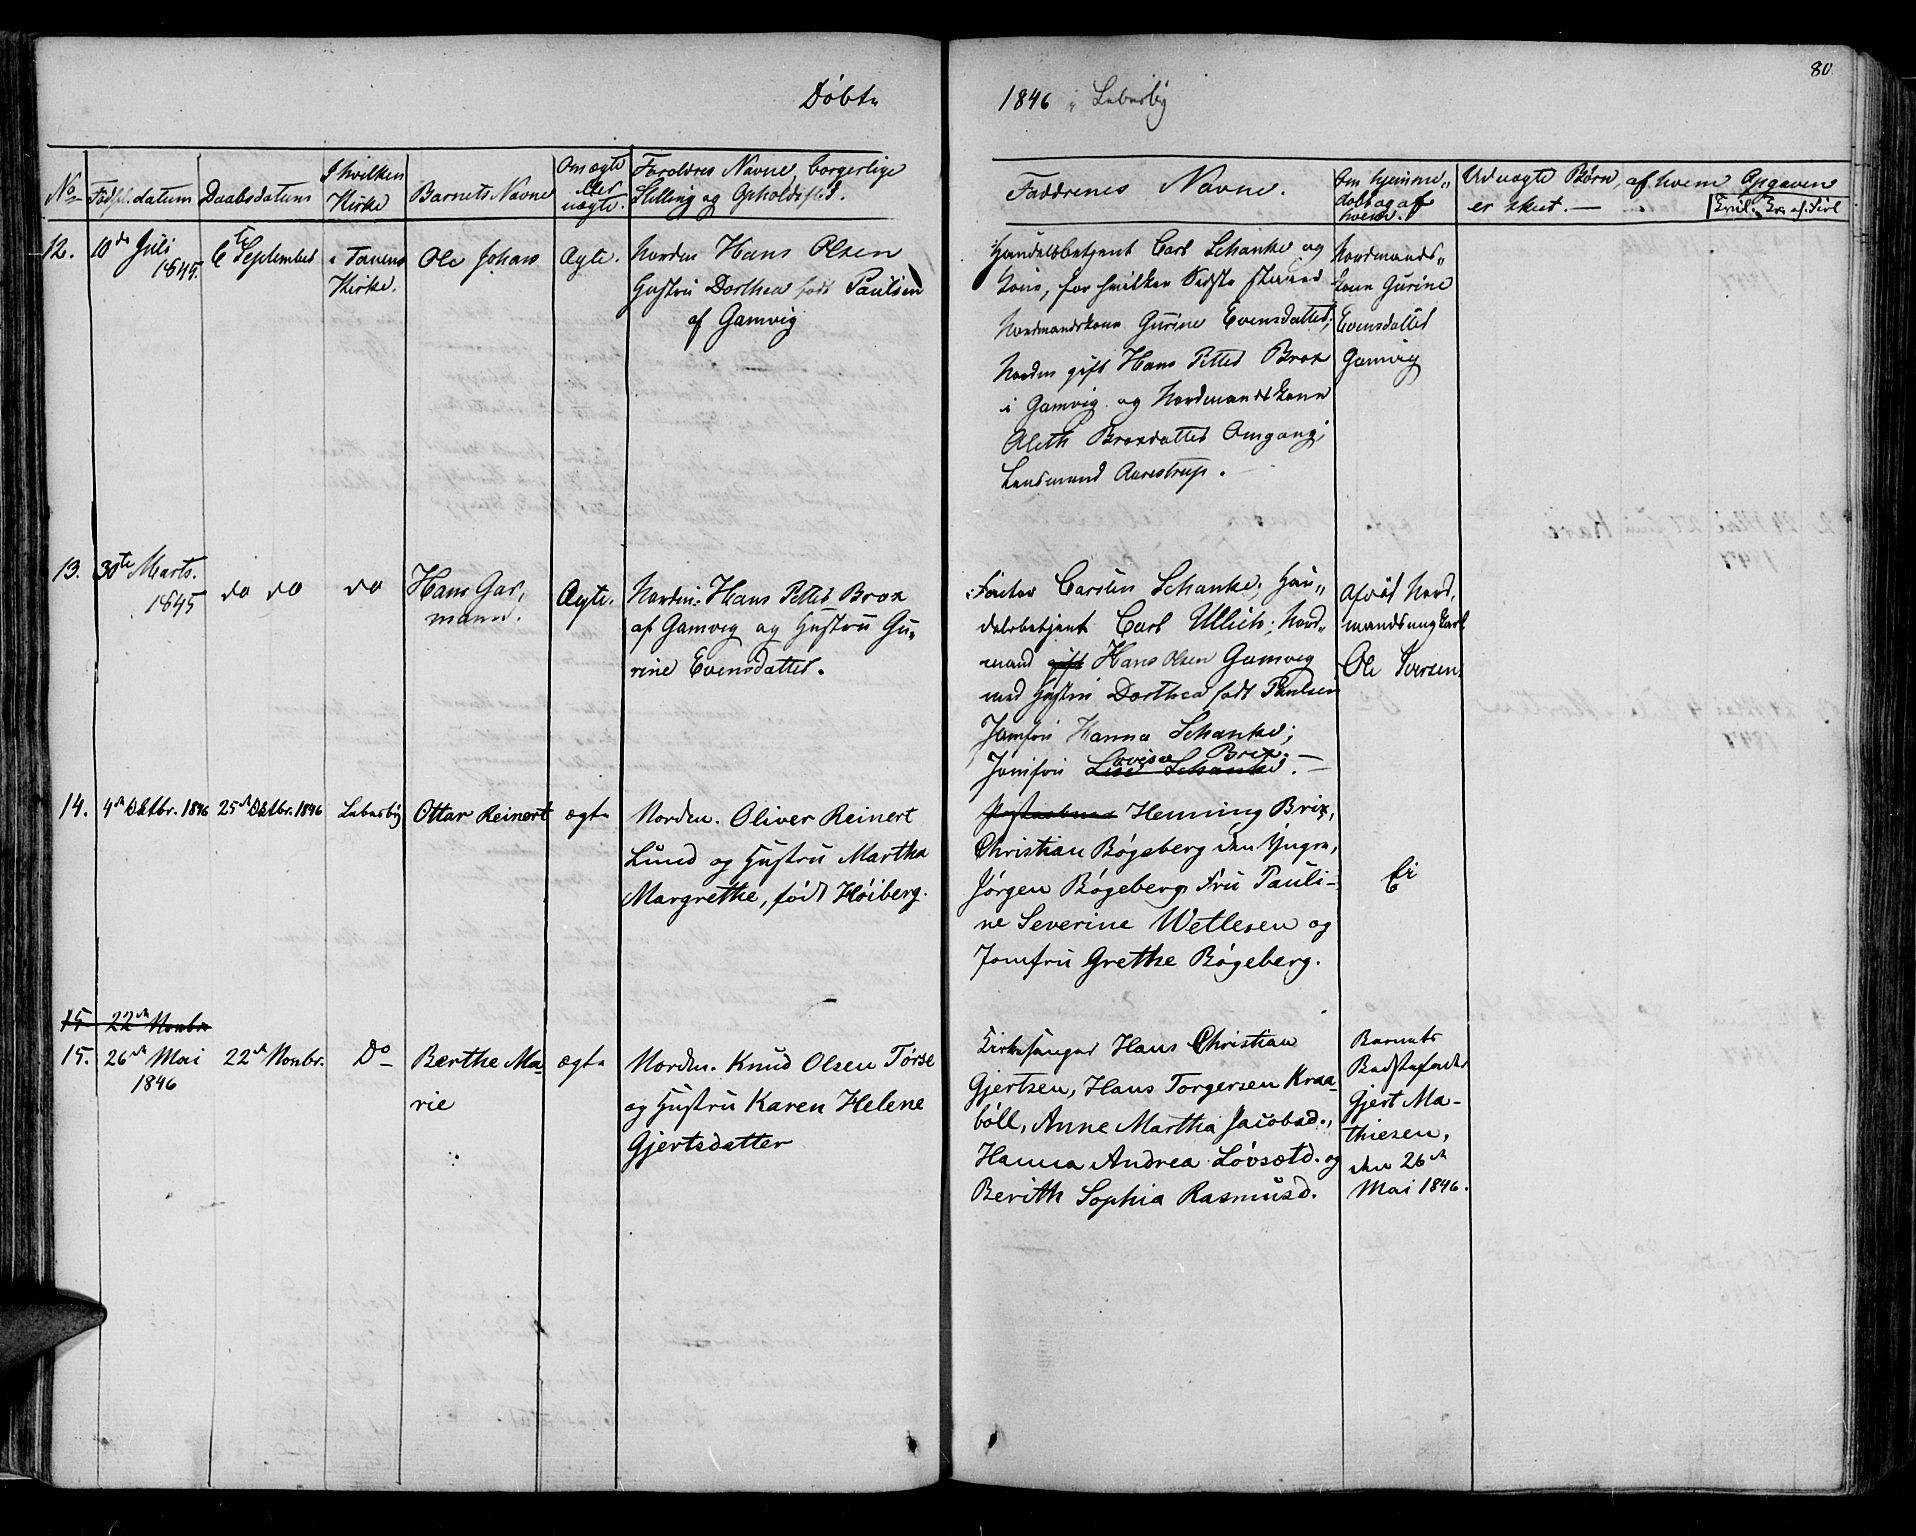 80
Döbte
1846 i Lebesby
No
Födsl.datum
Daabsdatum
I hvilken
Kirke
Barnets Navne
Om ægte
eller
uægte.
Forældres Navne, borgerlige
Stilling og Opholdssted.
Faddrenes Navne.
Om hjemme„
døbt og af
hvem.
Udvagte Børn, af hvem Opgaven
er skeet.
12.
10de Juli
1845.
6te September
i Tanens
Kirke.
Ole Johan
Ægte.
Norden Hans Olsen
Hustru Dorthea født Paulsen
af Gamvig
Handelsbetjent Carl Schanke og
Kone, for hvilken Sidste stoed
Nordmandskone Gurine Evensdatter;
Norden gift Hans Petter Brox
i Gamvig og Nordmandskone
Aleth Broxdatter Omgang;
Lensmand Aarestrup.
Nordmands„
kone Gurine
Evensdatter
Gamvig
13.
30te Marts.
1845
do do
do
Hans Gar„
mann.
Ægte.
Norden: Hans Petter Brox
af Gamvig og Hustru Gu„
rine Evensdatter.
Factor Carsten Schanke; Han„
delsbetjent Carl Ullich; Nord„
mand gift Hans Olsen Gamvig
med Hustru Dorthea født Paulsen
Jomfru Hanna Schanke;
Jomfru Lovise Brix.
Afdød Nord„
mandsungkarl
Ole Iversen.
14.
4de Oktbr. 1846
25de Oktbr. 1846
Lebesby
Ottar Reinert
ægte
Nordm. Oliver Reinert
Lund og Hustru Martha
Margrethe, født Höiberg.
Henning Brix,
Christian Bögeberg den Yngre,
Jörgen Bögeberg Fru Pauli-
ne Severine Wetlesen og
Jomfru Grethe Bögeberg.
Ei
15. 22de Novbr
15.
26de Mai
1846
22de Novbr.
Do
Berthe Ma-
rie
ægte
Nordm. Knud Olsen Törse
og Hustru Karen Helene
Gjertsdatter
Kirkesanger Hans Christian
Gjertsen, Hans Torgersen Kraa-
böll, Anne Martha Jacobsd.,
Hanna Andrea Lövsetd. og
Berith Sophia Rasmusd.
Barnets
Bedstefader
Gjert Ma-
thiesen,
den 26de
Mai 1846.